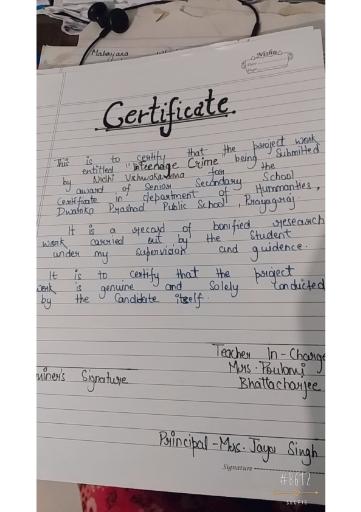 Malayana
Certificate
This is to certify that the project work
entitled "Inteenage Crime being Submitted
by Nidhi Vishwakarma for the
award of Senior Secondary School
Certificate in department of Hummanties,
Dwarika Prashad Public School, Prayagraj.
It is a record of bonified research
work carried out by the Student
under my Supervision and guidence.
It is to certify that the project
work is genuine and Solely Conducted
by the Candidate itself.
Teacher In-Charge
Mrs. Poulomi
Bhattacharjee
miner's Signature
Principal-Mrs. Jaya Singh
Signature
#BBT2
SELFIE